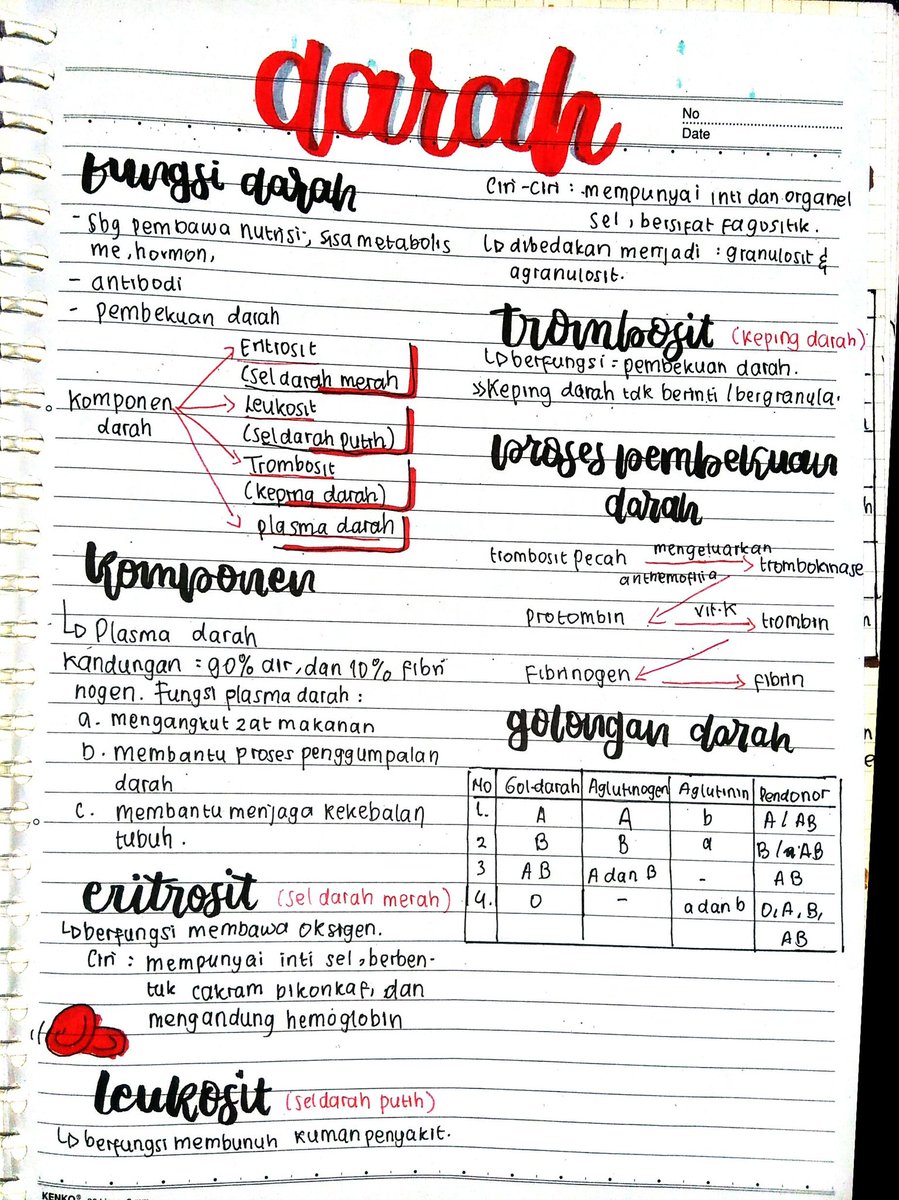 darah
No
Date
Fungsi darah
- Sbg pembawa nutrisi, sisa metabolis
me, hormon,
- antibodi
- pembekuan darah
Komponen
darah
Eritrosit
(sel darah merah
Leukosit
(sel darah putih)
Trombosit
(keping darah)
plasma darah
Komponen
Plasma darah
Kandungan : 90% air, dan 10% fibri
nogen. Fungsi plasma darah :
a. mengangkut zat makanan
b. membantu proses penggumpalan
darah
c. membantu menjaga kekebalan
tubuh.
eritrosit (sel darah merah)
berfungsi membawa oksigen.
Ciri : mempunyai inti sel, berben-
tuk cakram pikonkaf, dan
mengandung hemoglobin
leukosit (sel darah putih)
berfungsi membunuh kuman penyakit.
KENKO®
Ciri-ciri : mempunyai inti dan organel
sel, bersifat fagositik.
dibedakan menjadi : granulosit &
agranulosit.
trombosit (keping darah)
berfungsi : pembekuan darah.
»Keping darah tdk berinti / bergranula.
proses pembekuan
darah
trombosit pecah mengeluarkan trombokinase
anthemofilia
Protombin vit.K trombin
Fibrinogen fibrin
golongan darah
No Gol.darah Aglutinogen Aglutinin Pendonor
1. A A b A / AB
2 B B a B / AB
3 AB A dan B - AB
4. O - a dan b O, A, B,
AB